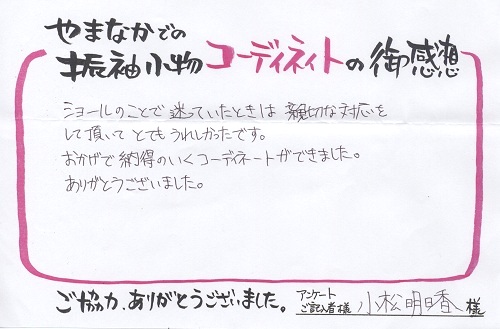 やまなかでの
振袖小物コーディネイトの御感想
ショールのことで迷っていたときは親切な対応を
して頂いてとてもうれしかったです。
おかげで納得のいくコーディネートができました。
ありがとうございました。
ご協力、ありがとうございました。
アンケート
ご記入者様 小松明日香 様